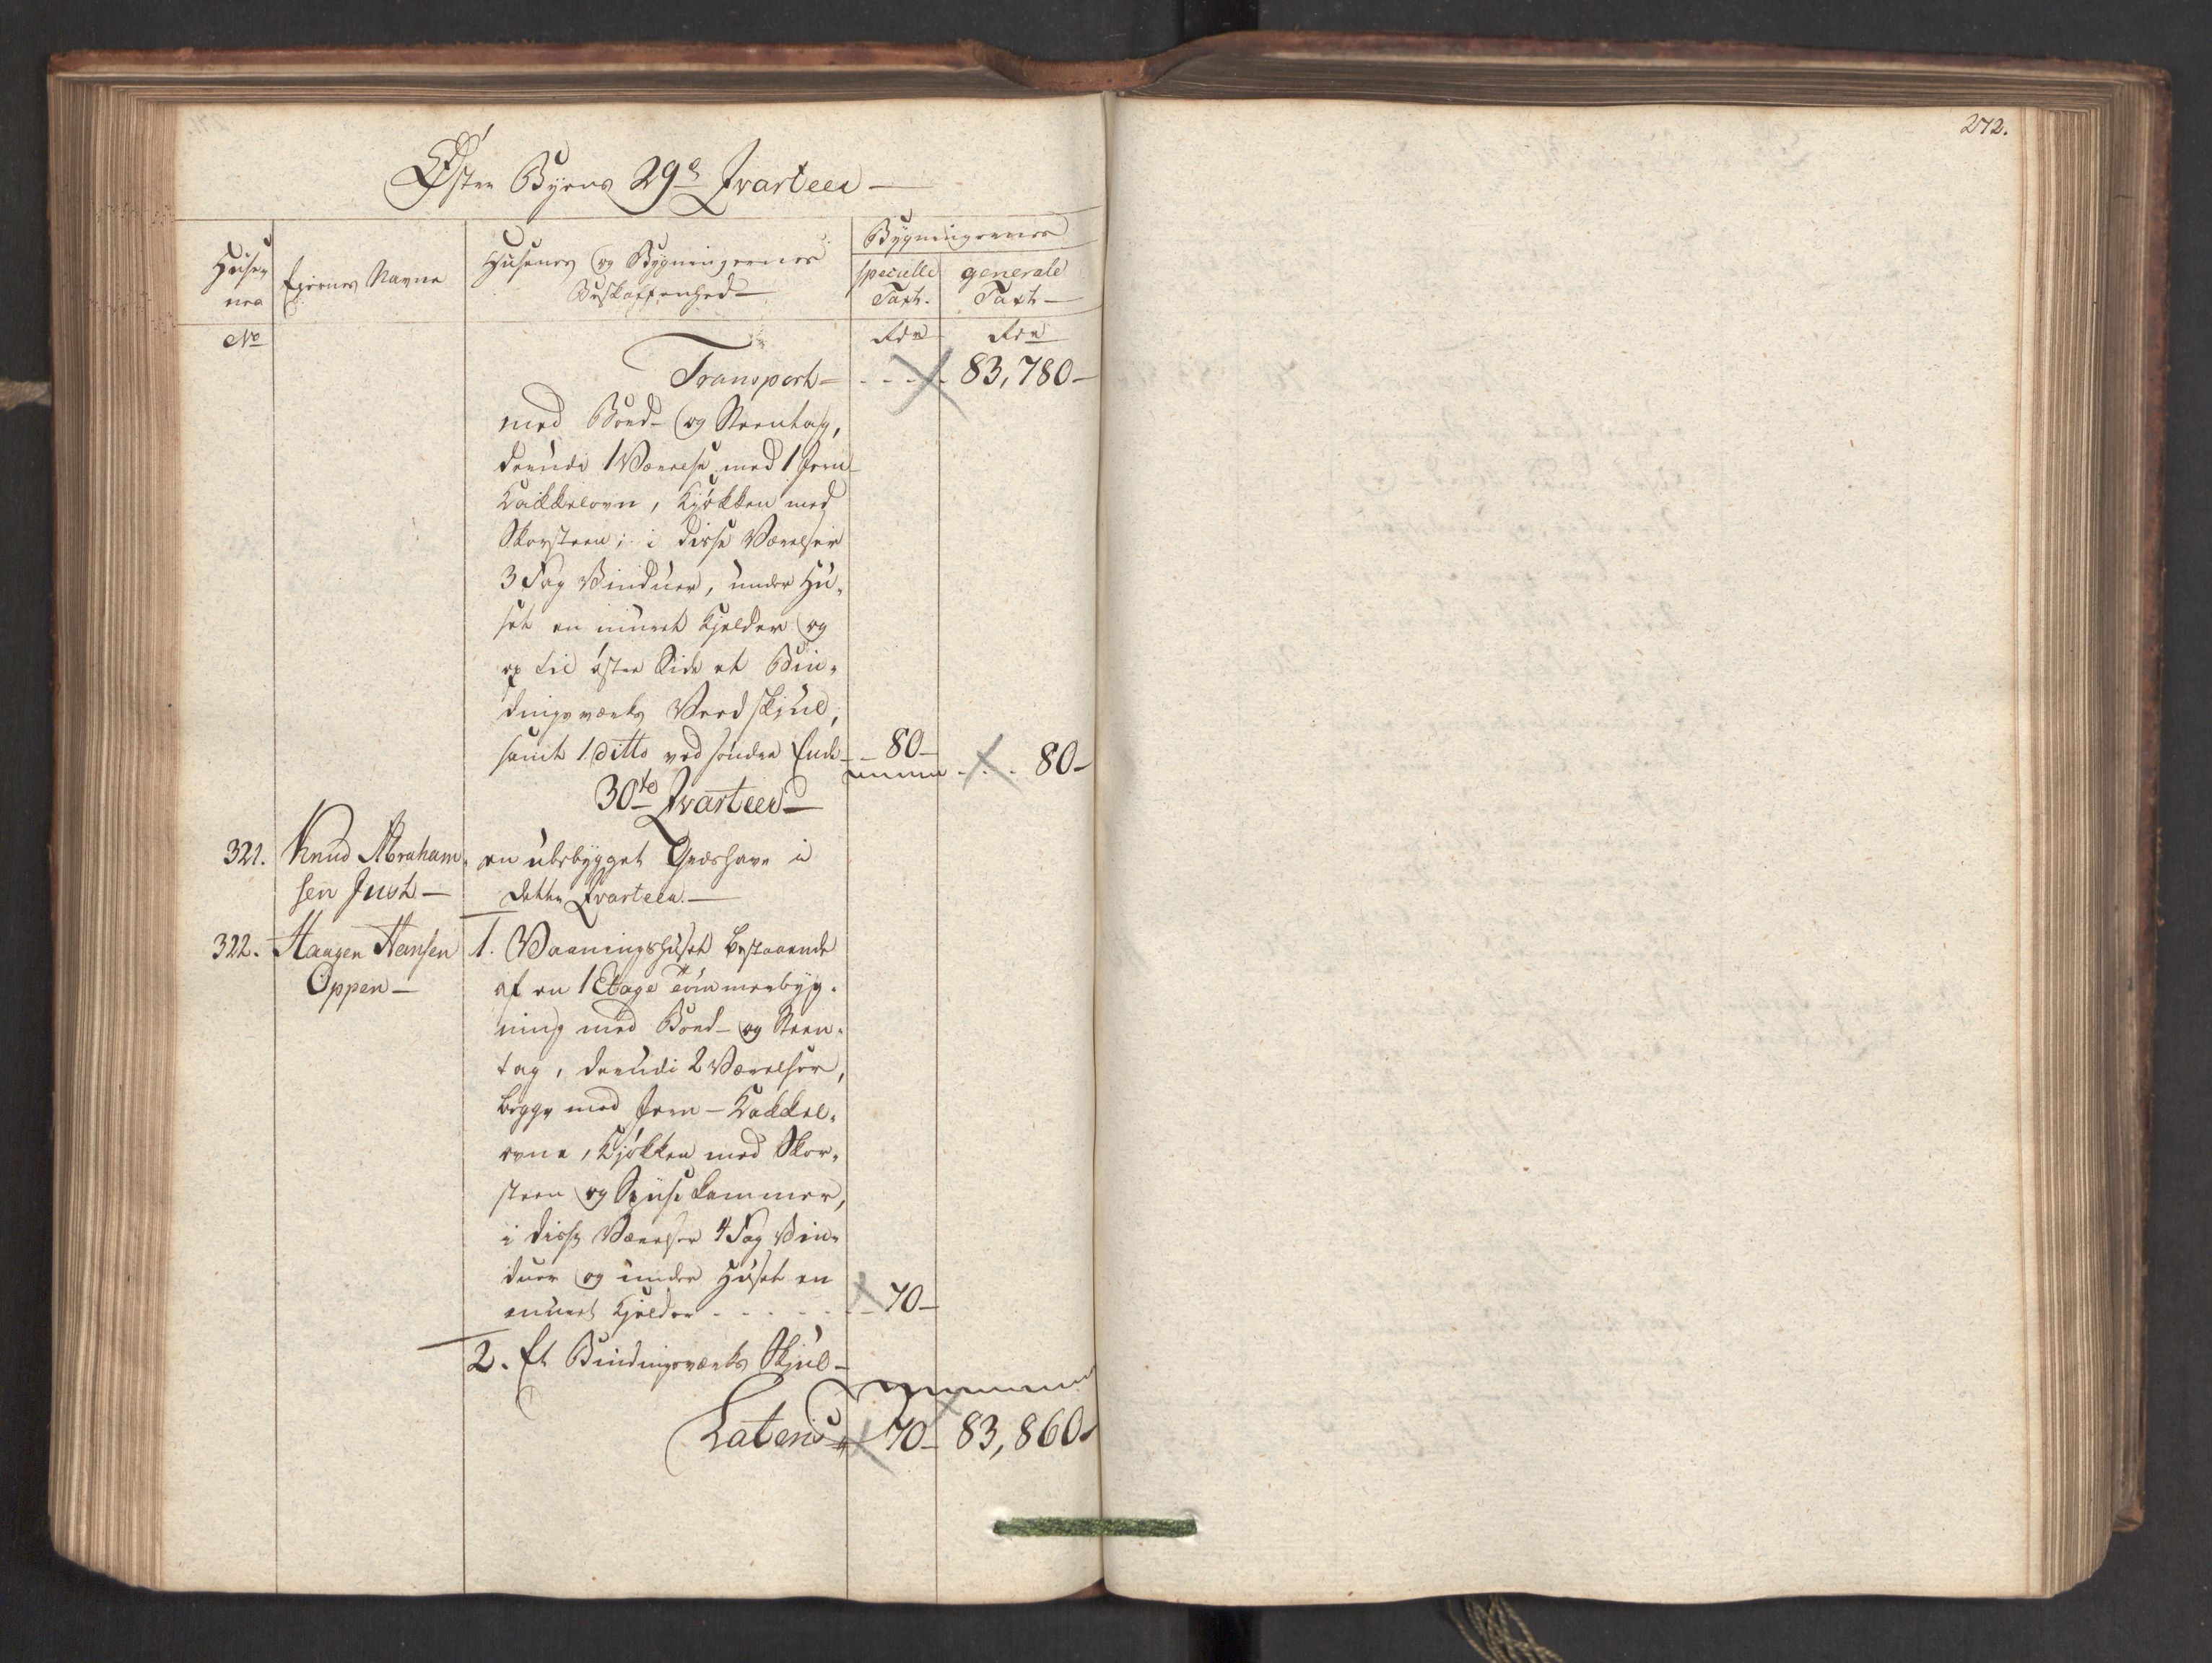 272.
Øster Byens 29e Qvarteer
Husenes
nes
Eiernes Navne
Husenes og Bygningernes
Beskaffenhed
Bygningernes
specielle
Taxt.
generale
Taxt
No
Rdr
Rdr
Transport 83,780
med Bord- og Steentag,
derudi 1 Værelse med 1 Jern
Kakkelovn, Kjøkken med
Skorsteen; i disse Værelser
3 Fag Vinduer, under Hu-
set en muret Kjelder og
op til østre Side et Bin-
dingsværks Vedskjul,
samt 1 ditto ved søndre Ende 80 80
30te Qvarteer
321. Knud Abraham- en ubebygget Gadehave i
sen Just dette Qvarteer.
322. Haagen Hansen 1. Vaaningshuset bestaaende
Oppen af en 1 Etage Tømmerbyg-
ning med Bord- og Steen-
tag, derudi 2 Værelser,
begge med Jern-Kakkel-
ovne, Kjøkken med Skor-
steen og Spiisekammer,
i disse Værelser 4 Fag Vin-
duer og under Huset en
muret Kjelder 70
2. Et Bindingsværks Skjul
Lateris 70 83,860